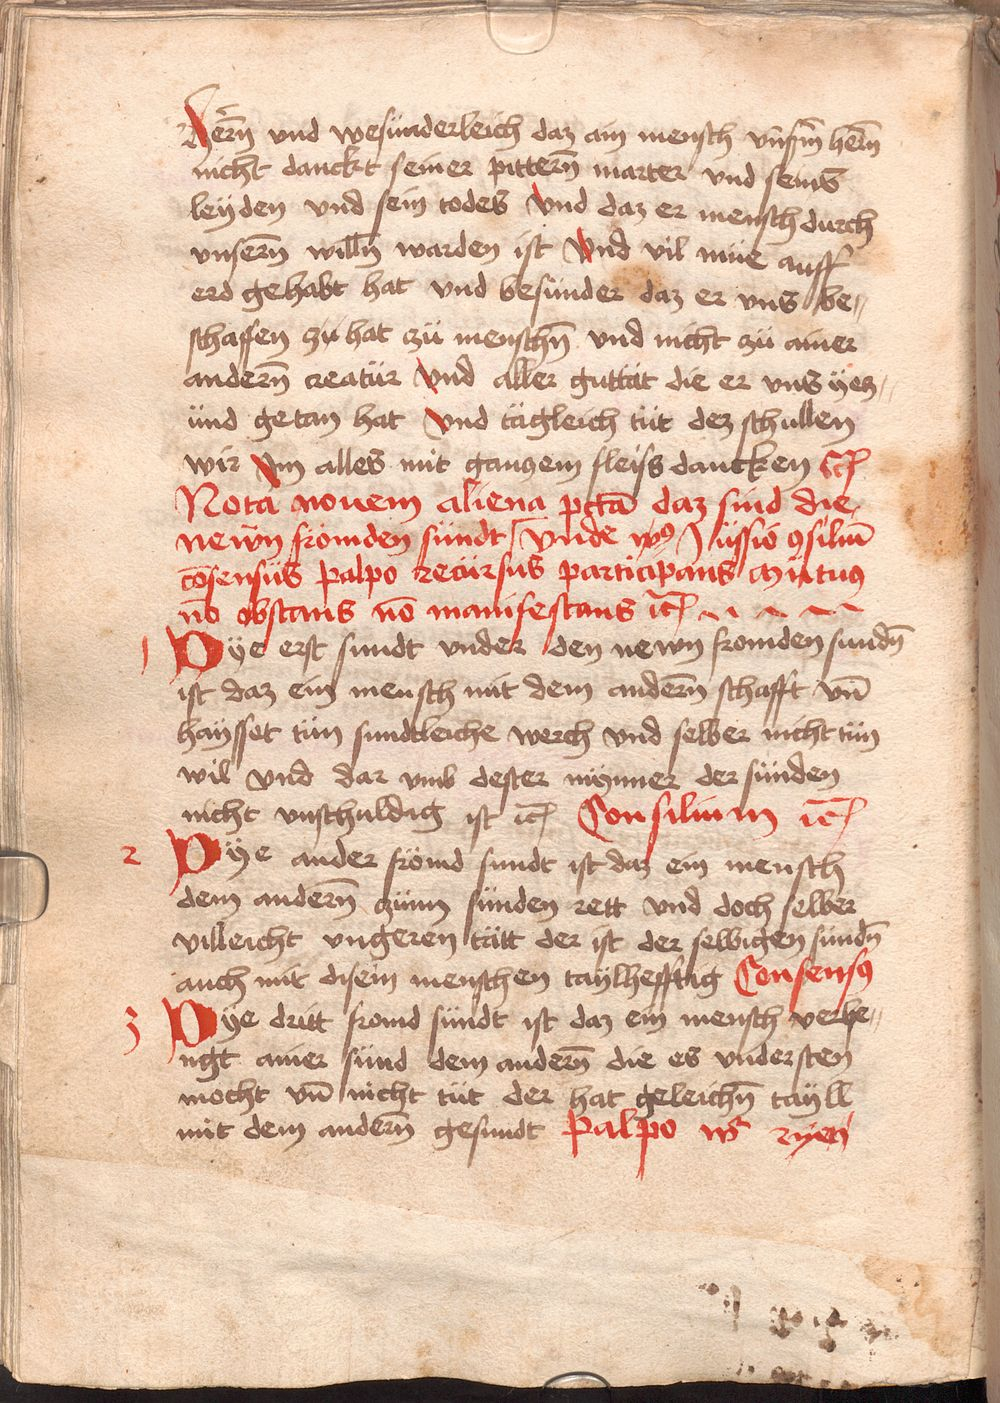 und wesünderleich daz ain mensch unserm herrn
nicht danckt seiner pittern̄ marter und seins
leyden und sein todes Und daz er mensch durch
unsern̄ willn̄ warden ist Und vil müe auff
erd gehabt hat und besünder daz er uns be=
schaffen zü hat zü menschn̄ und nicht zü ainer
andern̄ creatür Und aller guttät die er uns yecz=
ünd getan hat Und tägleich tüt dez schullen
wir Im alles mit ganczem fleiss dancken etc̄
Nota novem aliena pctā daz sind die
newn̄ frömden sündt Unde vꝰ Jussio ꝯsiliū
cōsensüs palpo recürsus participans mütus
nō obstans nō manifestans etc̄
1 Dye erst sundt under den newn fromden sundn̄
ist daz ein mensch mit dem andern̄ schafft un̄
haysset tün sundtleiche werch und selber nicht tün
wil und dar umb dester mynner der sünden
nicht unschuldig ist etc̄ Consilium etc̄
2 Dye ander frömd sundt ist daz ein mensch
dem andern̄ zünn sünden rett und doch selber
villeicht ungeren tätt der ist der selbigen sündn̄
auch mit disem menschen taylhefftig Consensꝰ
3 Dye dritt fromd sündt ist daz ein mensch verhe=
ngt ainer sünd dem andern̄ die es understen
mocht un̄ nicht tüt der hat geleichn̄ tayll
mit dem andern̄ gesundt Palpo